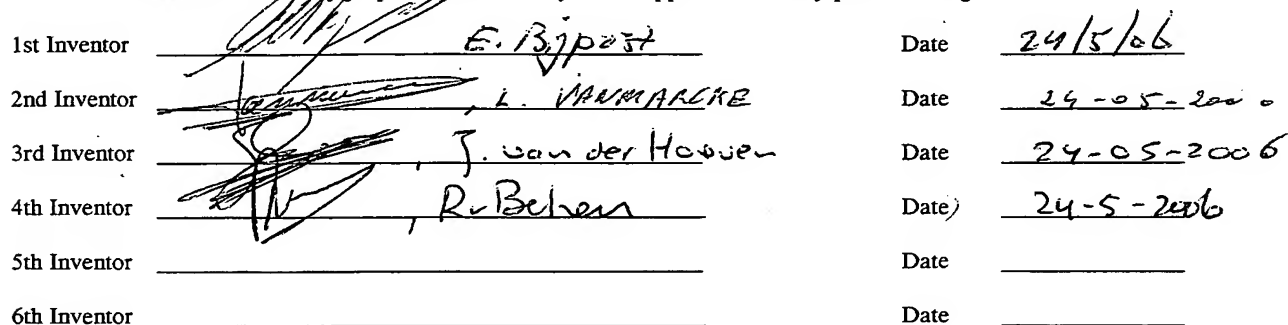 1st Inventor E. Bijpost Date 24/5/06
2nd Inventor , L. VANMARCKE Date 24-05-200
3rd Inventor , J. van der Hoeven Date 24-05-2006
4th Inventor , R. v Behen Date) 24-5-2006
5th Inventor Date
6th Inventor Date